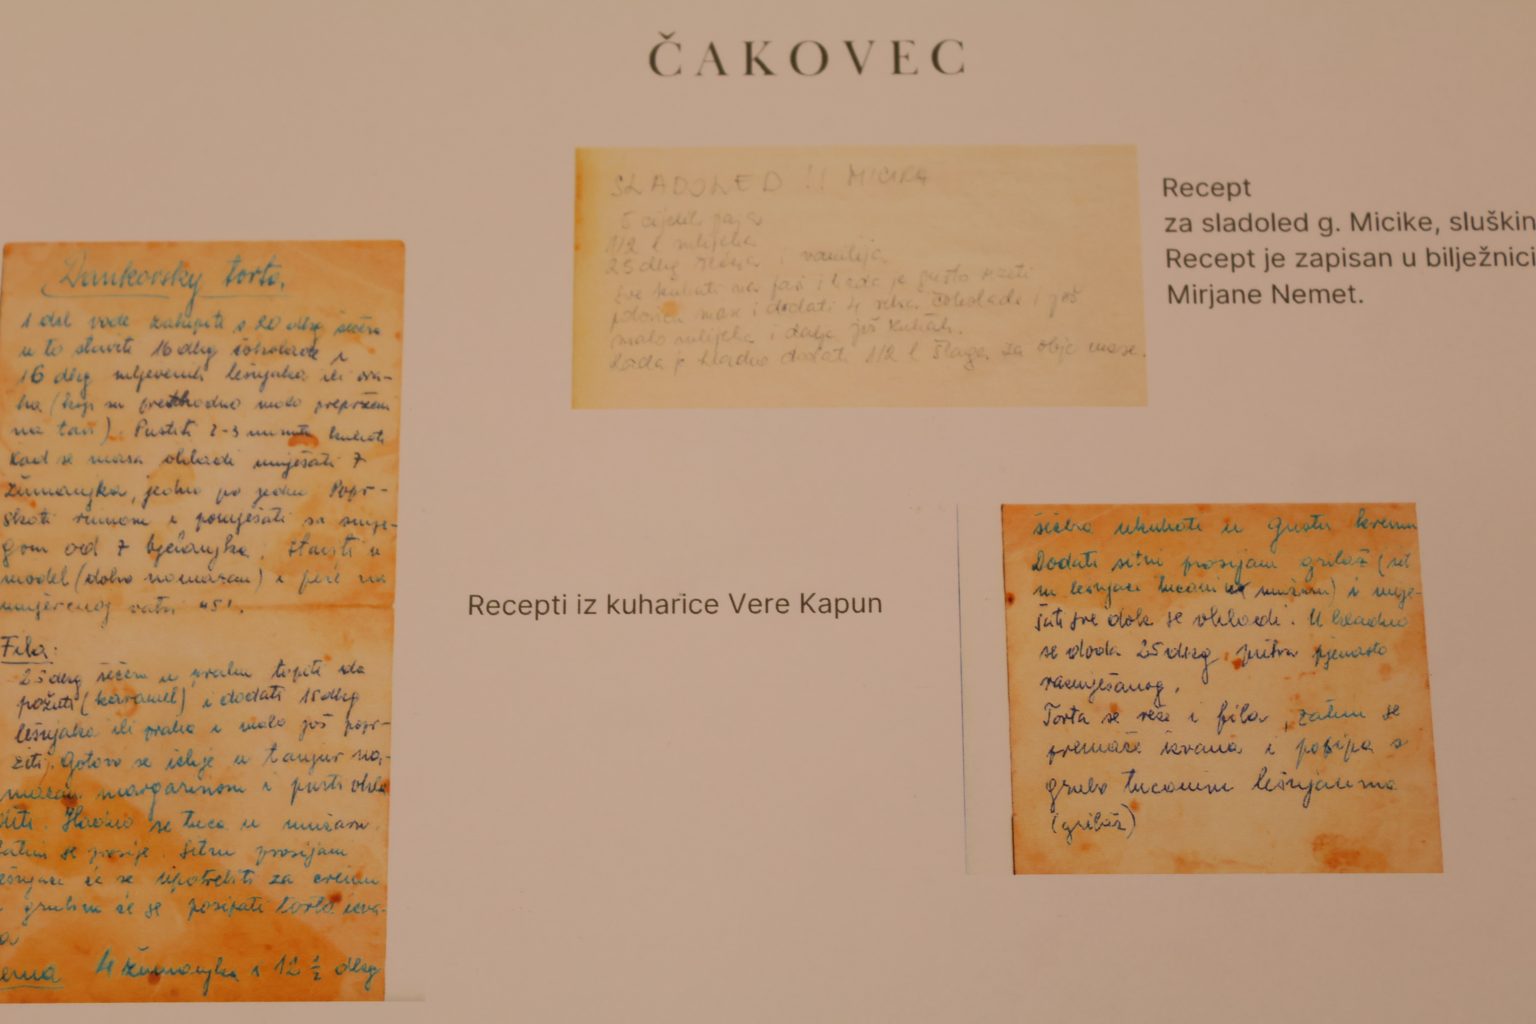 ČAKOVEC
SLADOLED !! MICIKA
5 cijelih jaja
1/2 l mlijeka
25 dkg i vanilija
sve kuhati na pari i kada je gusto uzeti
polovicu mase i dodati 4 čokolade i još
malo mlijeka i dalje još kuhati.
kada je hladno dodati 1/2 l šlaga za obje mase.
Recept
za sladoled g. Micike, sluškin
Recept je zapisan u bilježnici
Mirjane Nemet.
torta.
1 del vode zakipiti s 20 dkg šećera
u to staviti 16 dkg čokolade i
16 dkg mljevenih lešnjaka ili ora-
ha (koji su prethodno malo preprženi
na tavi). Pustiti 2-3 minute kuhati
Kad se masa ohladi umješati 7
žumanjka, jedno po jedno. Popr-
skati rumom i pomješati sa snije-
gom od 7 bjelanjka. Staviti u
model (dobro namazan) i peče na
umjerenoj vatri 45'.
Fila:
25 dkg šećera u topiti da
požuti (karamel) i dodati 15 dkg
lešnjaka ili oraha i malo još popr-
žiti. Gotovo se izlije u tanjur na-
mazan margarinom i pusti ohla
diti. Hladno se tuca u mužaru
zatim se prosije. Sitni prosijani
lešnjaci će se upotrebiti za kremu
grubim će se posipati torta izva-
a
ema 4 žumanjka i 12 1/2 dkg
Recepti iz kuharice Vere Kapun
šećera ukuhati u gustu kremu
Dodati sitni prosijani grilaž (sit
ni lešnjaci tucani u mužaru) i mje-
šati sve dok se ohladi. U hladno
se doda 25 dkg putra pjenasto
razmješanog.
Torta se reže i fila, zatim se
premaže izvana i posipa s
grubo tucanim lešnjacima
(grilaž)